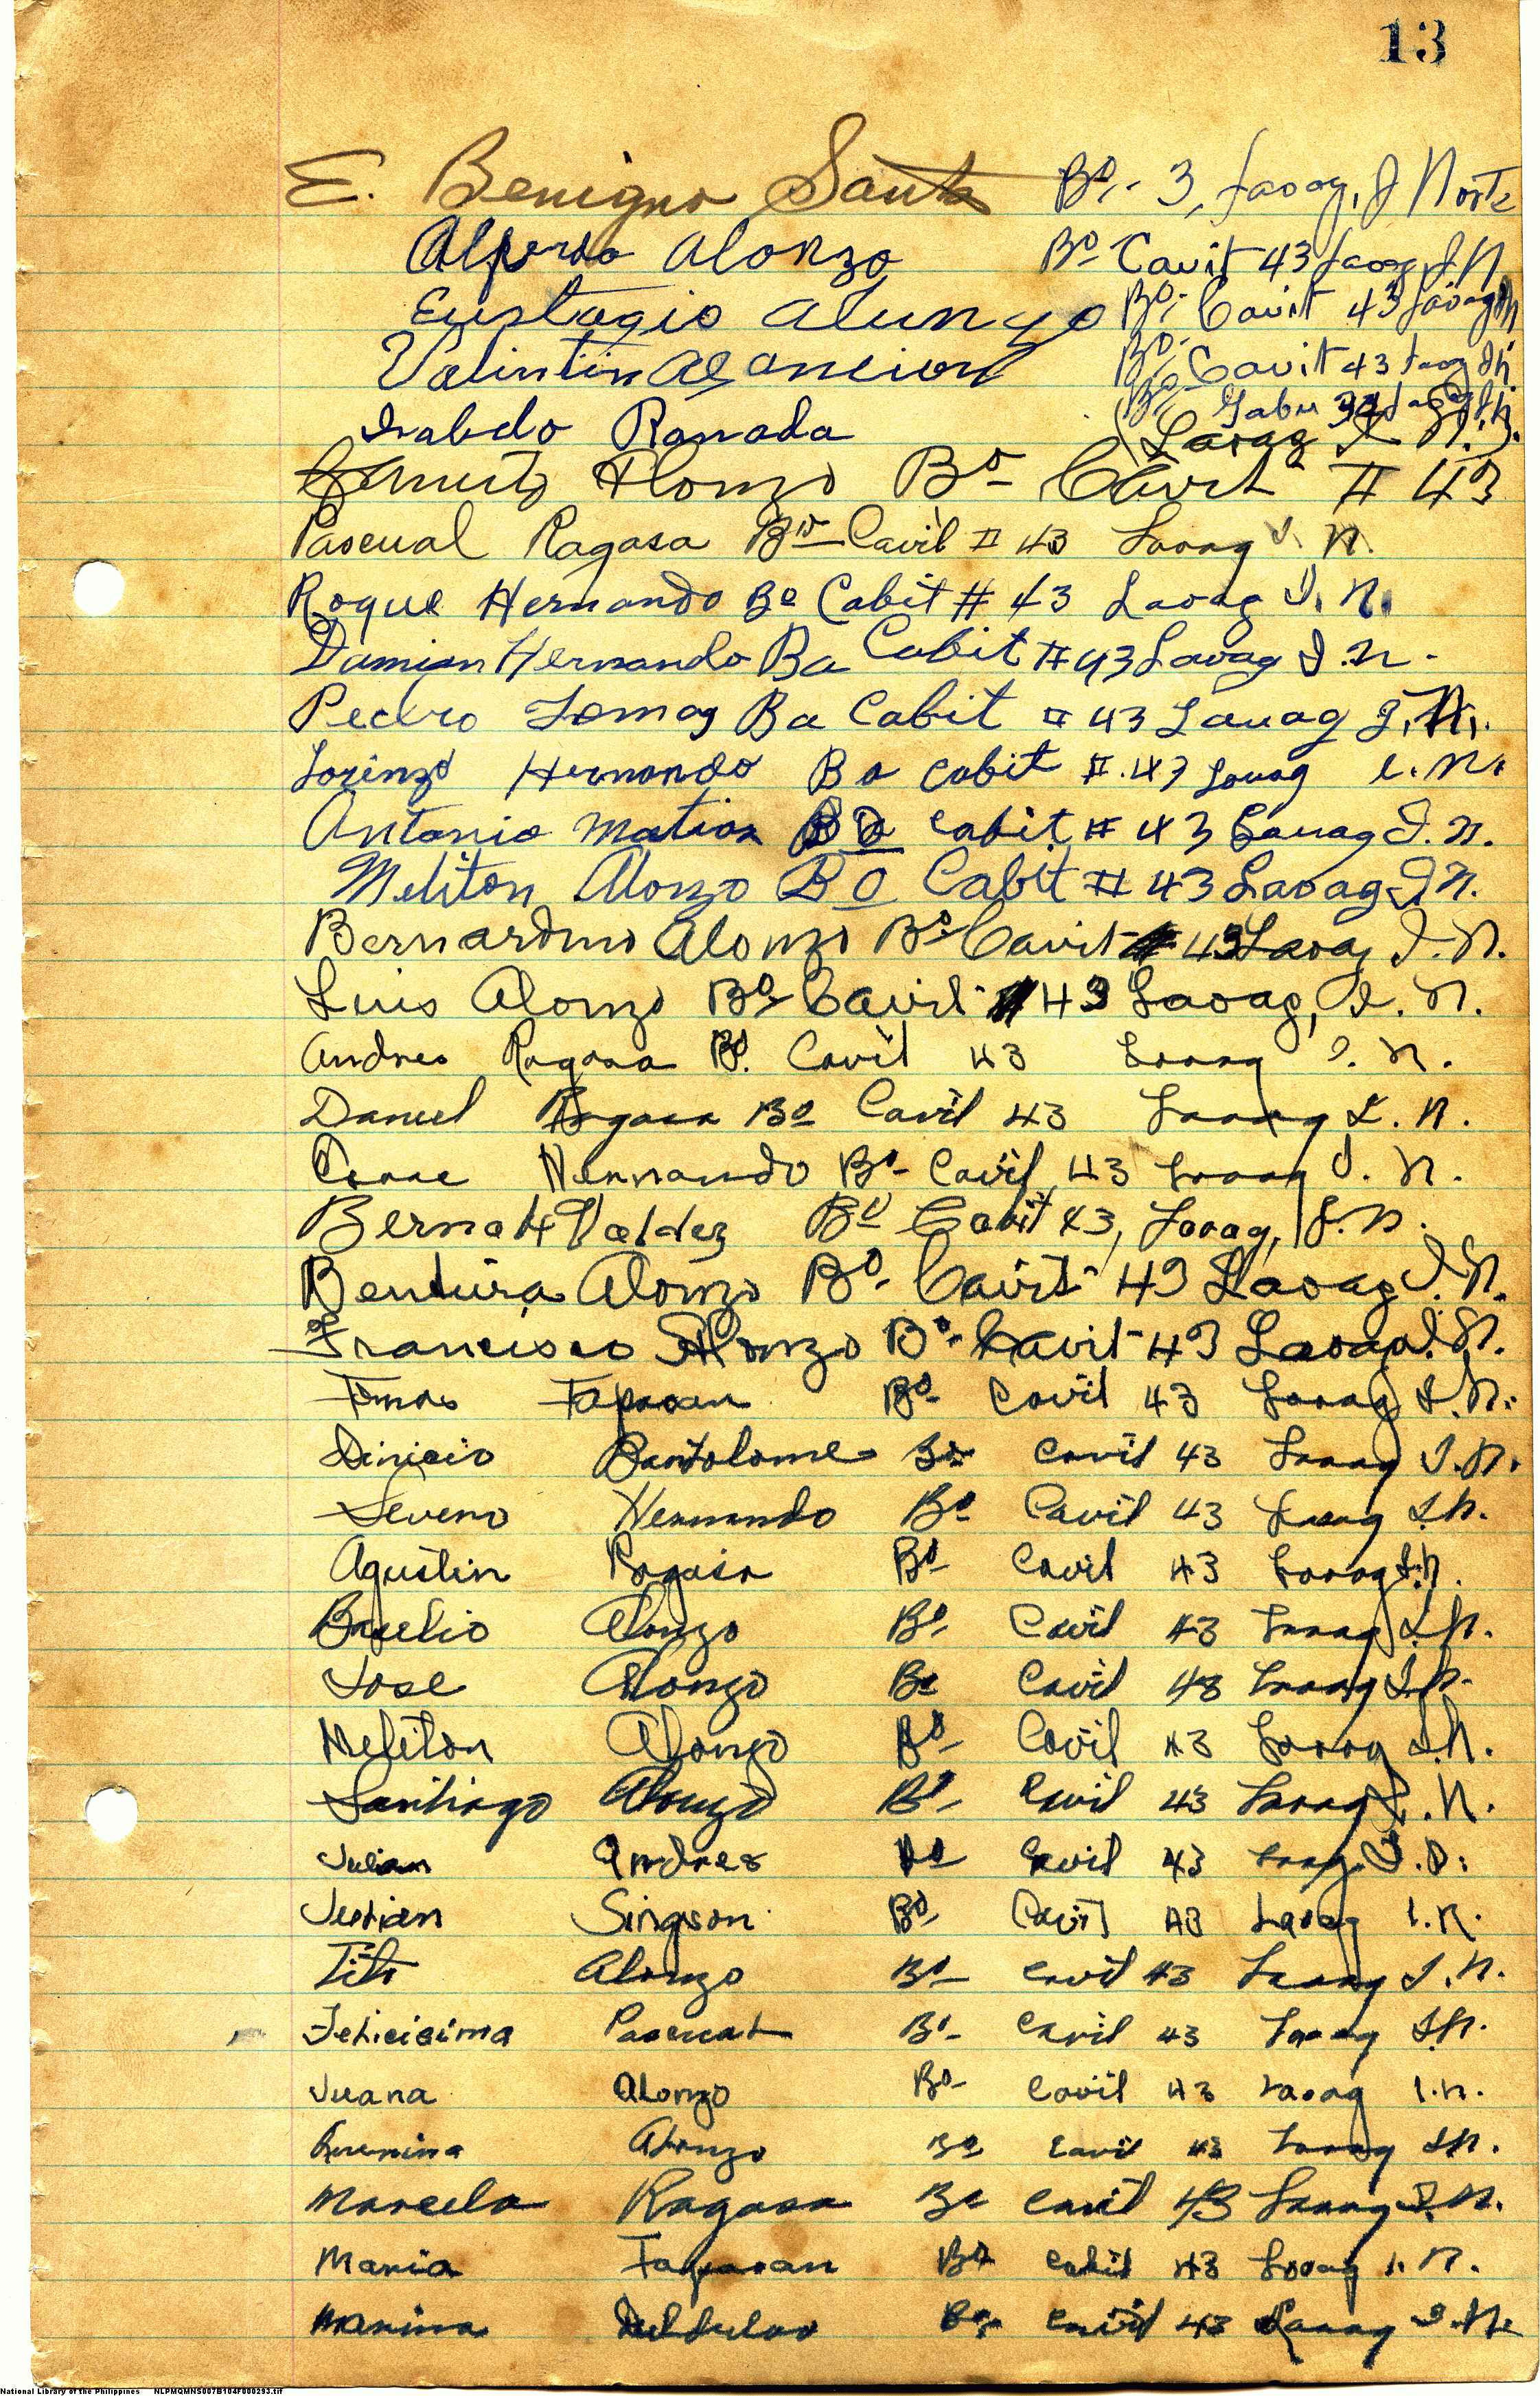 13
E. Benigno Bo.- 3, Laoag, I Norte
Alfredo Alonzo Bo Cavit 43 Laoag, I N
Eustagio Alunzo Bo- Cavit 43 Laoag IN
Valintin Asancion Bo- Cavit 43 Laoag IN.
Isabelo Ranada Bo- Gabu 34 Laoag I.N.
(Laoag I. N.).
Alonzo Bo- Cavit # 43
Pascual Ragasa Bo- Cavit # 43 Laoag I. N.
Roque Hernando Bo Cabit # 43 Laoag I. N.
Damian Hernando Ba Cabit # 43 Laoag I.N.
Pedro Lomag Ba Cabit # 43 Lauag I.N.
Lorinzo Hernando Bo cabit #.43 Louag I.N.
Antonio Matias BO cabit # 43 Lauag I.N.
Meliton Alonzo BO Cabit # 43 Laoag I N.
Bernardino Alonzo Bo- Cavit # 43 Laoag I.N.
Luis Alonzo Bo- Cavit # 43 Laoag, I. N.
Andres Ragasa Bo. Cavit 43 Laoag I. N.
Daniel Ragasa Bo Cavit 43 Laoag I. N.
Hernando Bo- Cavit 43 Laoag I. N.
Bernabe Valdez Bo Cavit 43, Laoag, I.N.
Bentura Alonzo Bo- Cavit 43 Laoag I.N.
Francisco Alonzo Bo- Cavit 43 Laoag I.N.
Tomas Tapaoan Bo- Cavit 43 Laoag I.N.
Dinicio Bartolome Bo- Cavit 43 Laoag I.N.
Severo Hernando Bo- Cavit 43 Laoag I.N.
Agustin Ragasa Bo- Cavit 43 Laoag I.N.
Basilio Alonzo Bo- Cavit 43 Laoag I.N.
Jose Alonzo Bo- Cavit 43 Laoag I.N.
Meliton Alonzo Bo- Cavit 43 Laoag I.N.
Santiago Alonzo Bo- Cavit 43 Laoag I.N.
Julian Andres Bo Cavit 43 Laoag I.N.
Julian Singson Bo- Cavit 43 Laoag I.N.
Tito Alonzo Bo- Cavit 43 Laoag I.N.
Felicisima Pascual Bo- Cavit 43 Laoag I.N.
Juana Alonzo Bo- Cavit 43 Laoag I.N.
Alonzo Bo- Cavit 43 Laoag I.N.
Marcela Ragasa Bo Cavit 43 Laoag I.N.
Maria Tapaoan Bo- Cabit 43 Laoag I. N.
Bo- Cavit 43 Laoag I.N.
National Library of the Philippines NLPMQMNS007B104F000293.tif